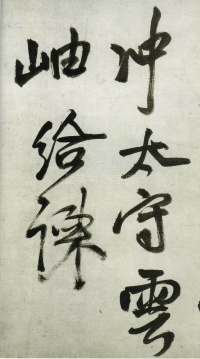 冲太守雲
岫给諫